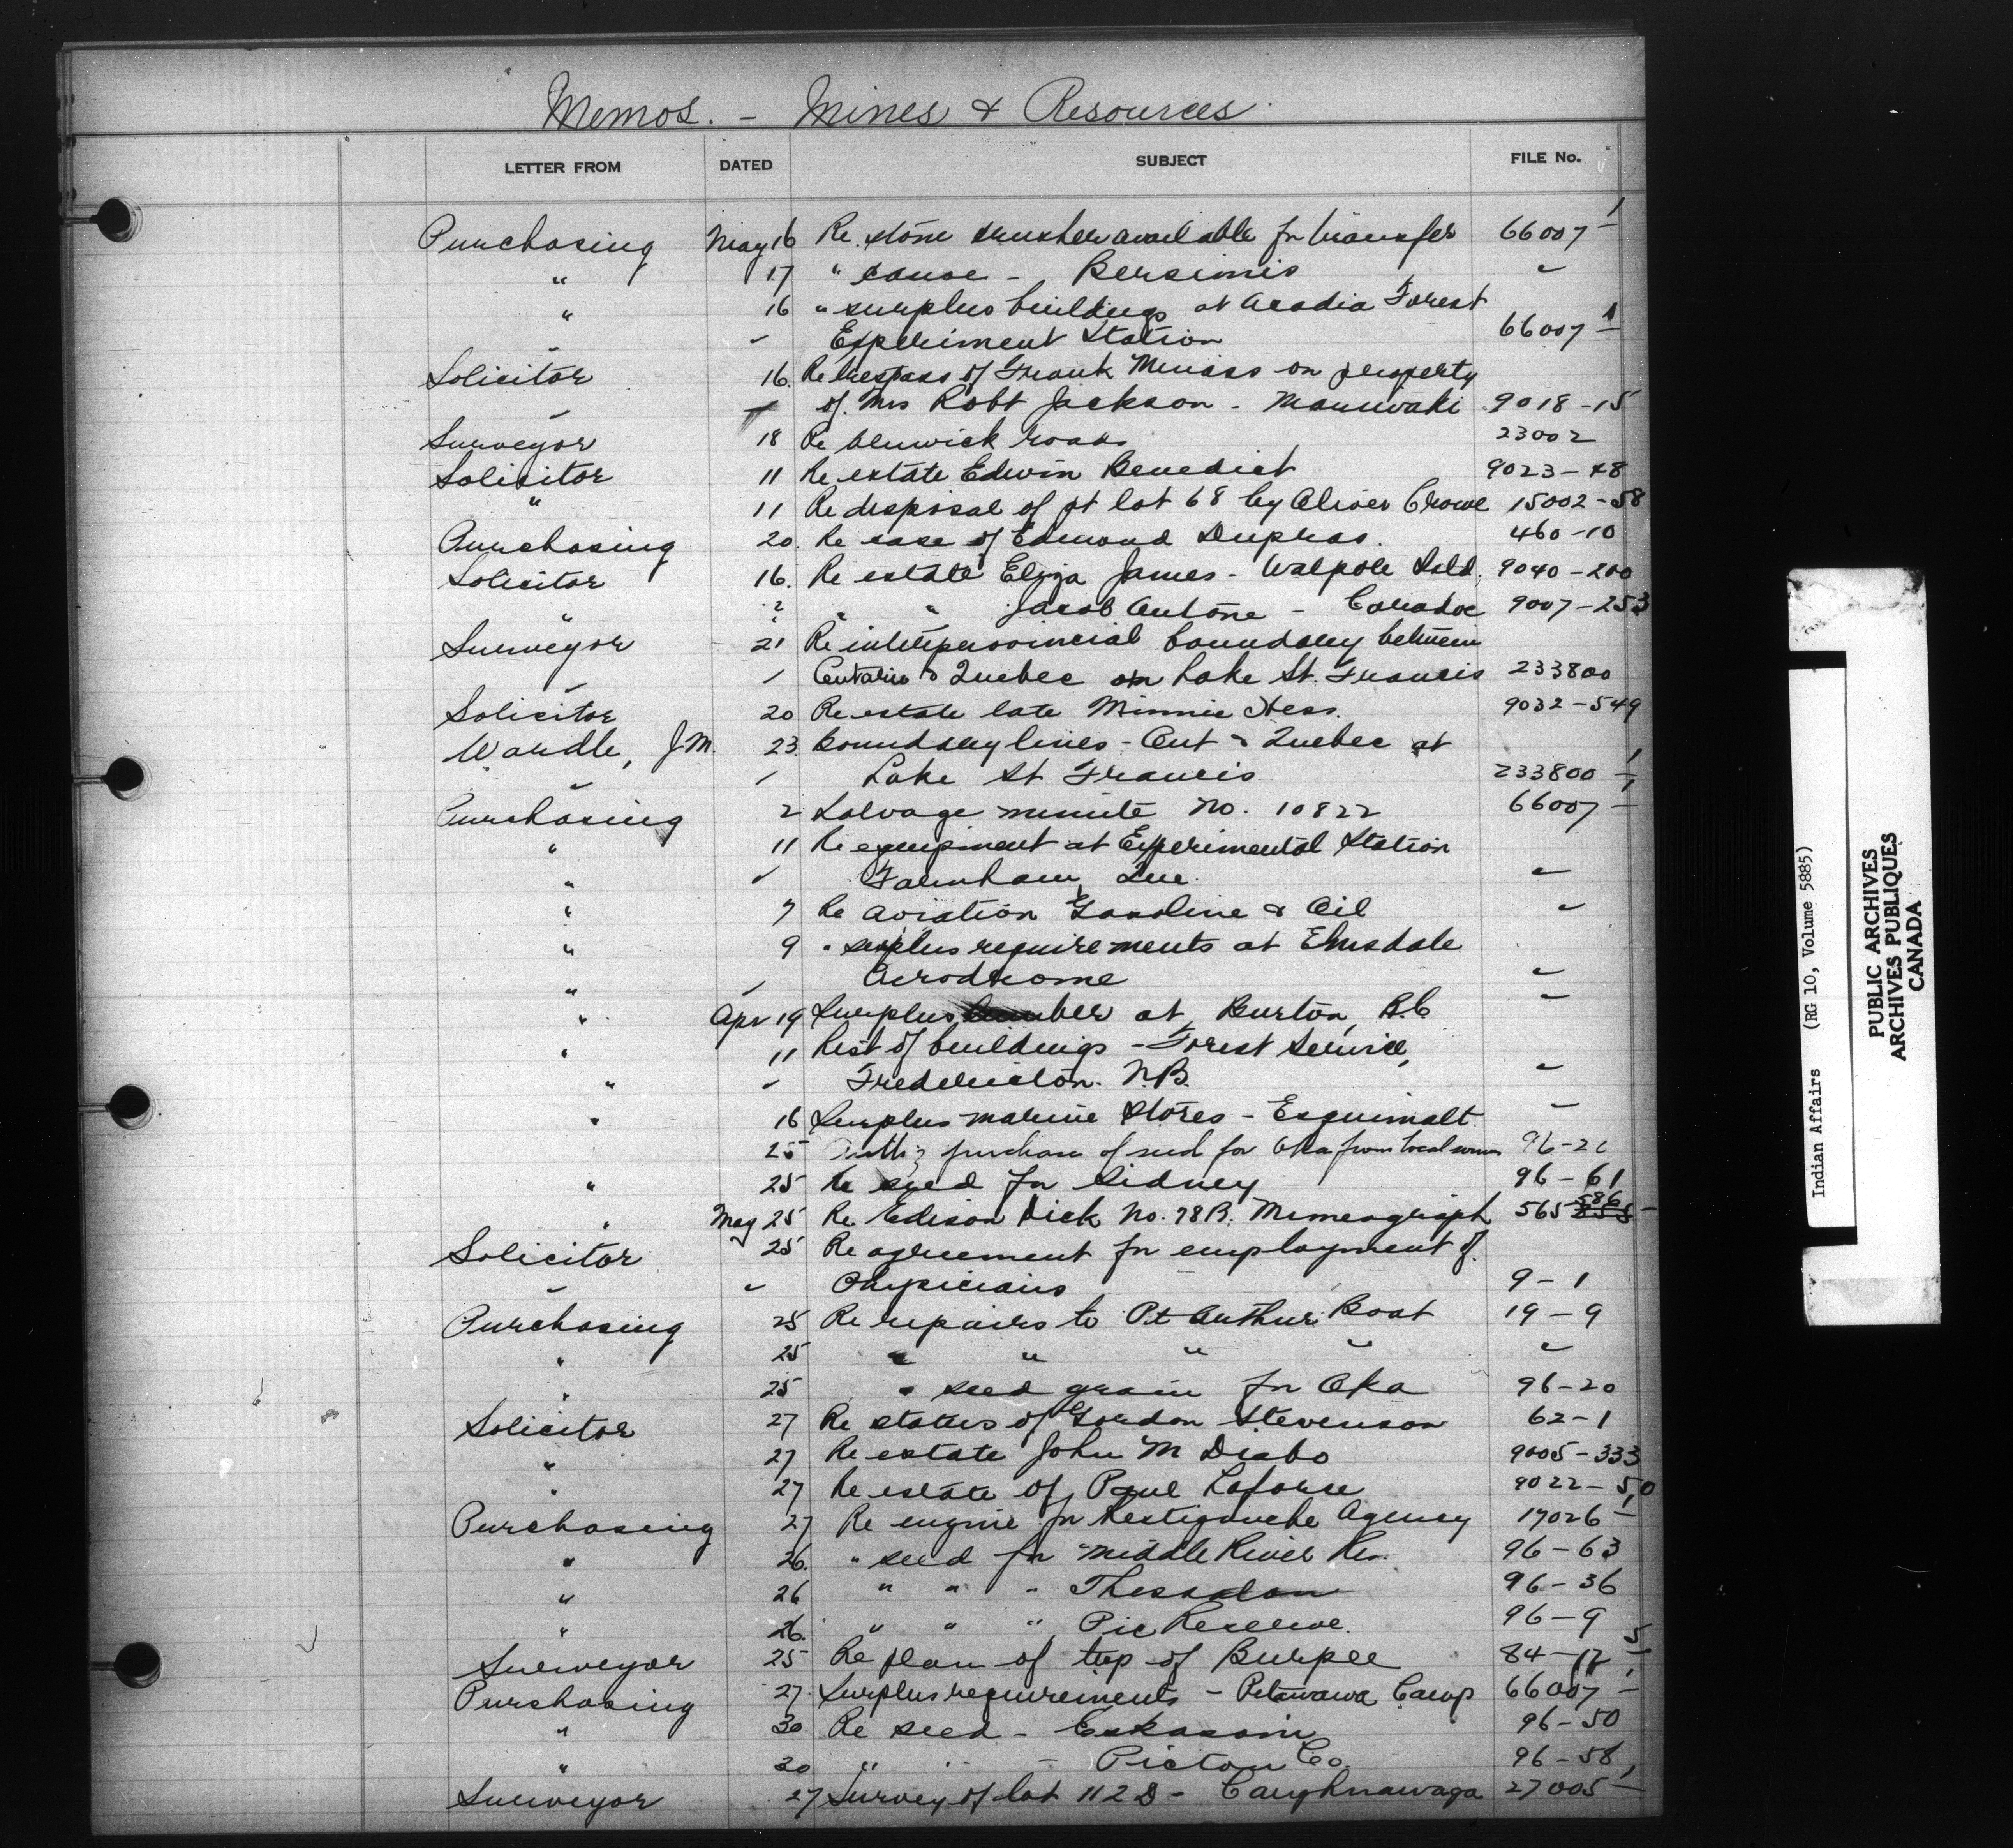 Memos. - Mines & Resources
LETTER FROM DATED SUBJECT FILE No.
Purchasing May 16 Re. stone crusher available for transfer 66007-1
" 17 " canoe - Bersimis "
" 16 " surplus buildings at Acadia Forest
" Experiment Station 66007-1
Solicitor 16. Re trespass of Frank on property
" of Mrs Robt Jackson - Maniwaki 9018-15
Surveyor 18 Re roads 23002
Solicitor 11 Re estate Edwin Benedict 9023-48
" 11 Re disposal of pt lot 68 by Oliver Crowe 15002-58
Purchasing 20. Re case of Edmond Dupras. 460-10
Solicitor 16. Re estate Eliza James - Walpole Isld. 9040-200
" " " Jacob Antone - Caradoc 9007-253
Surveyor 21 Re interprovincial boundary between
" Ontario & Quebec on Lake St. Francis 233800
Solicitor 20 Re estate late Minnie Hess. 9032-549
Wardle, J.M. 23. Boundary lines - Ont & Quebec at
" Lake St Francis 233800-1
Purchasing 2 Salvage minute No. 10822 66007-1
" 11 Re equipment at Experimental Station
" " Farnham, Que. "
" 7 Re Aviation Gasoline & Oil "
" 9 " surplus requirements at Elmsdale
" " Aerodrome "
" Apr 19 Surplus at Burton, B.C "
" 11 List of buildings - Forest Service,
" " Fredericton. N.B. "
" 16 Surplus marine stores - Esquimalt. "
25 purchase of seed for Oka from local 96-20
" 25 Re seed for Sidney 96-61
" May 25 Re Edison Dick No. 78B. Mimeograph 565 586
Solicitor 25 Re agreement for employment of
" Physicians 9-1
Purchasing 25 Re repairs to Pt Arthur Boat 19-9
" 25 " " " " "
" 25 " seed grain for Oka 96-20
Solicitor 27 Re status of Gordon Stevenson 62-1
" 27 Re estate John M Diabo 9005-333
" 27 Re estate of Paul Laforce 9022-50
Purchasing 27 Re engine for Restigouche Agency 17026-1
" 26. " seed for Middle River Res. 96-63
" 26 " " " Thessalon 96-36
" 26. " " " Pic Reserve. 96-9
Surveyor 25 Re plan of twp of Burpee 84-17
Purchasing 27. Surplus requirements - Petawawa Camp 66007-1
" 30 Re seed - Eskasoni 96-50
" 30 " " - Pictou Co. 96-58
Surveyor 27 Survey of lot 112 D - Caughnawaga 27005-1
Indian Affairs (RG 10, Volume 5885)
PUBLIC ARCHIVES
ARCHIVES PUBLIQUES
CANADA